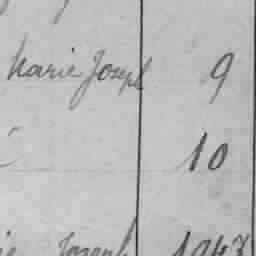 Marie Joseph 9
10
Joseph 1943